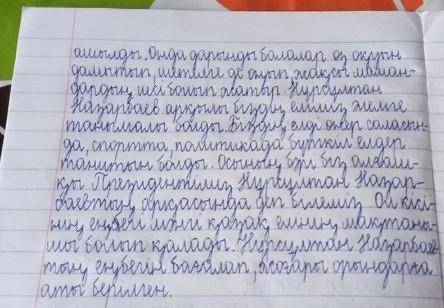 ашылды. Онда дарынды балалар өз оқуын
дамытып, шетелге де оқып, жақсы маман-
дардың иесі болып жатыр. Нұрсұлтан
Назарбаев арқылы біздің еліміз әлемге
танымалы болды. Біздің елді өнер саласын-
да, спортта, политикада бүткіл елдер
танитын болды. Осының бәрі біз алғаш-
қы Президентіміз Нұрсұлтан Назар-
баевтың арқасында деп білеміз. Ол кісі-
нің еңбегі мәңгі қазақ елінің мақтаны-
шы болып қалады. Нұрсұлтан Назарбаев
тың еңбегін бағалап, жоғары орындарға
аты берілген.